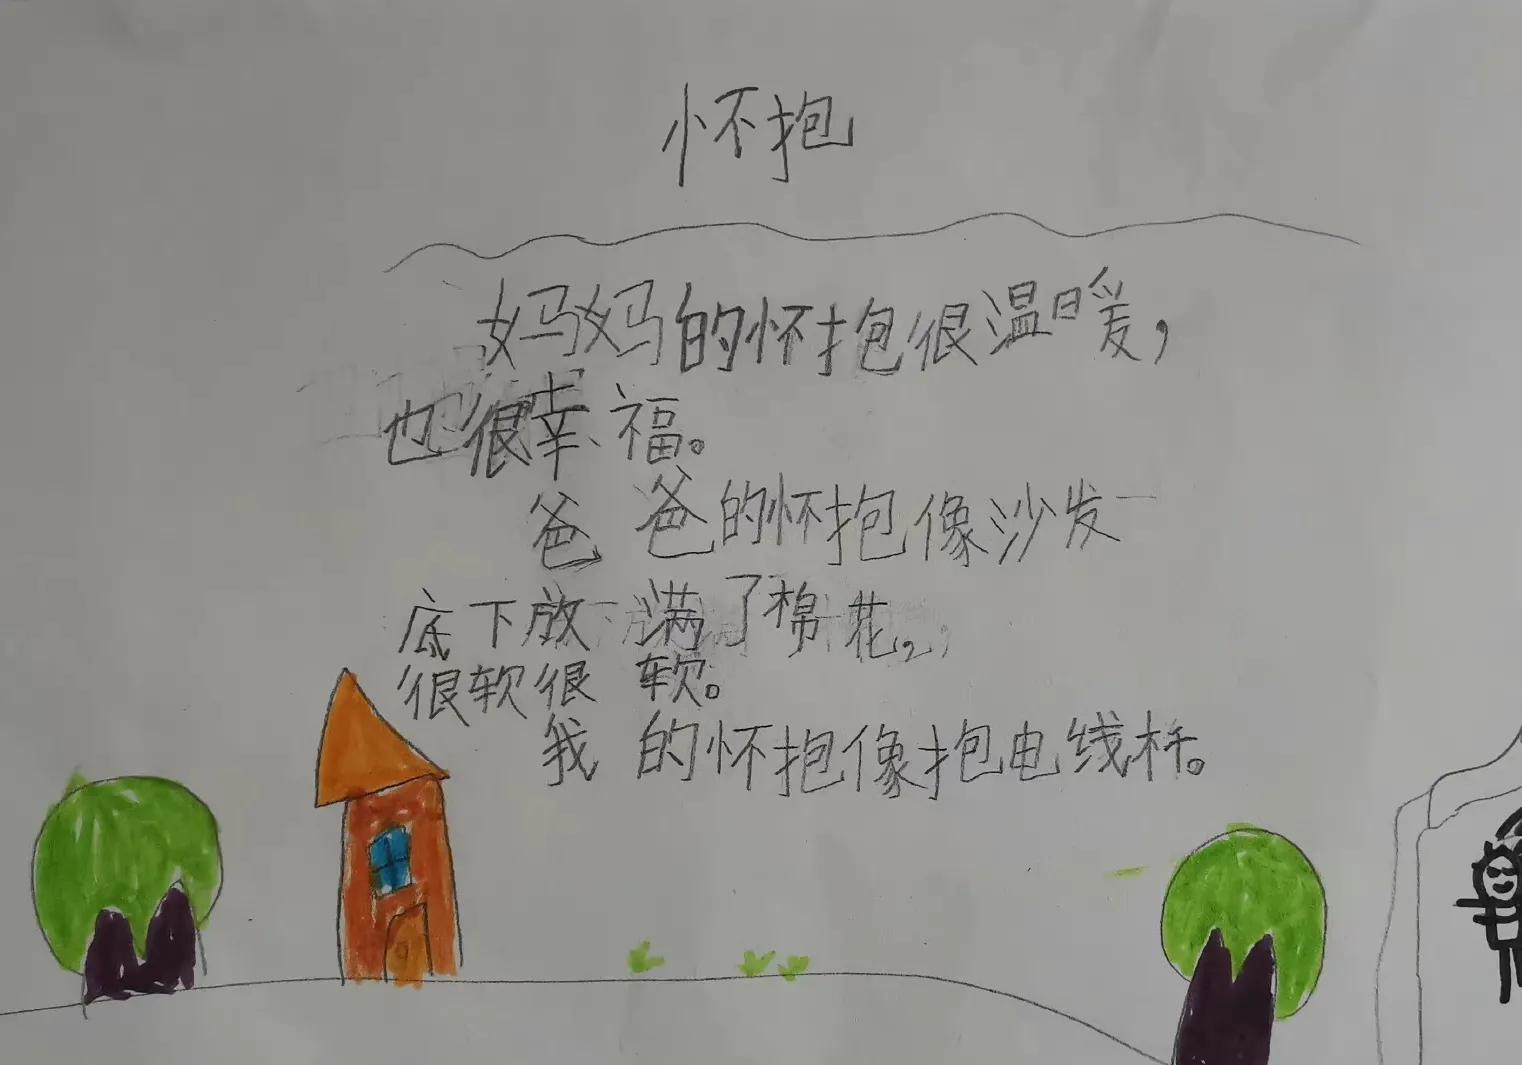 怀抱
妈妈的怀抱很温暖，
也很幸福。
爸爸的怀抱像沙发
底下放满了棉花，
很软很软。
我的怀抱像抱电线杆。